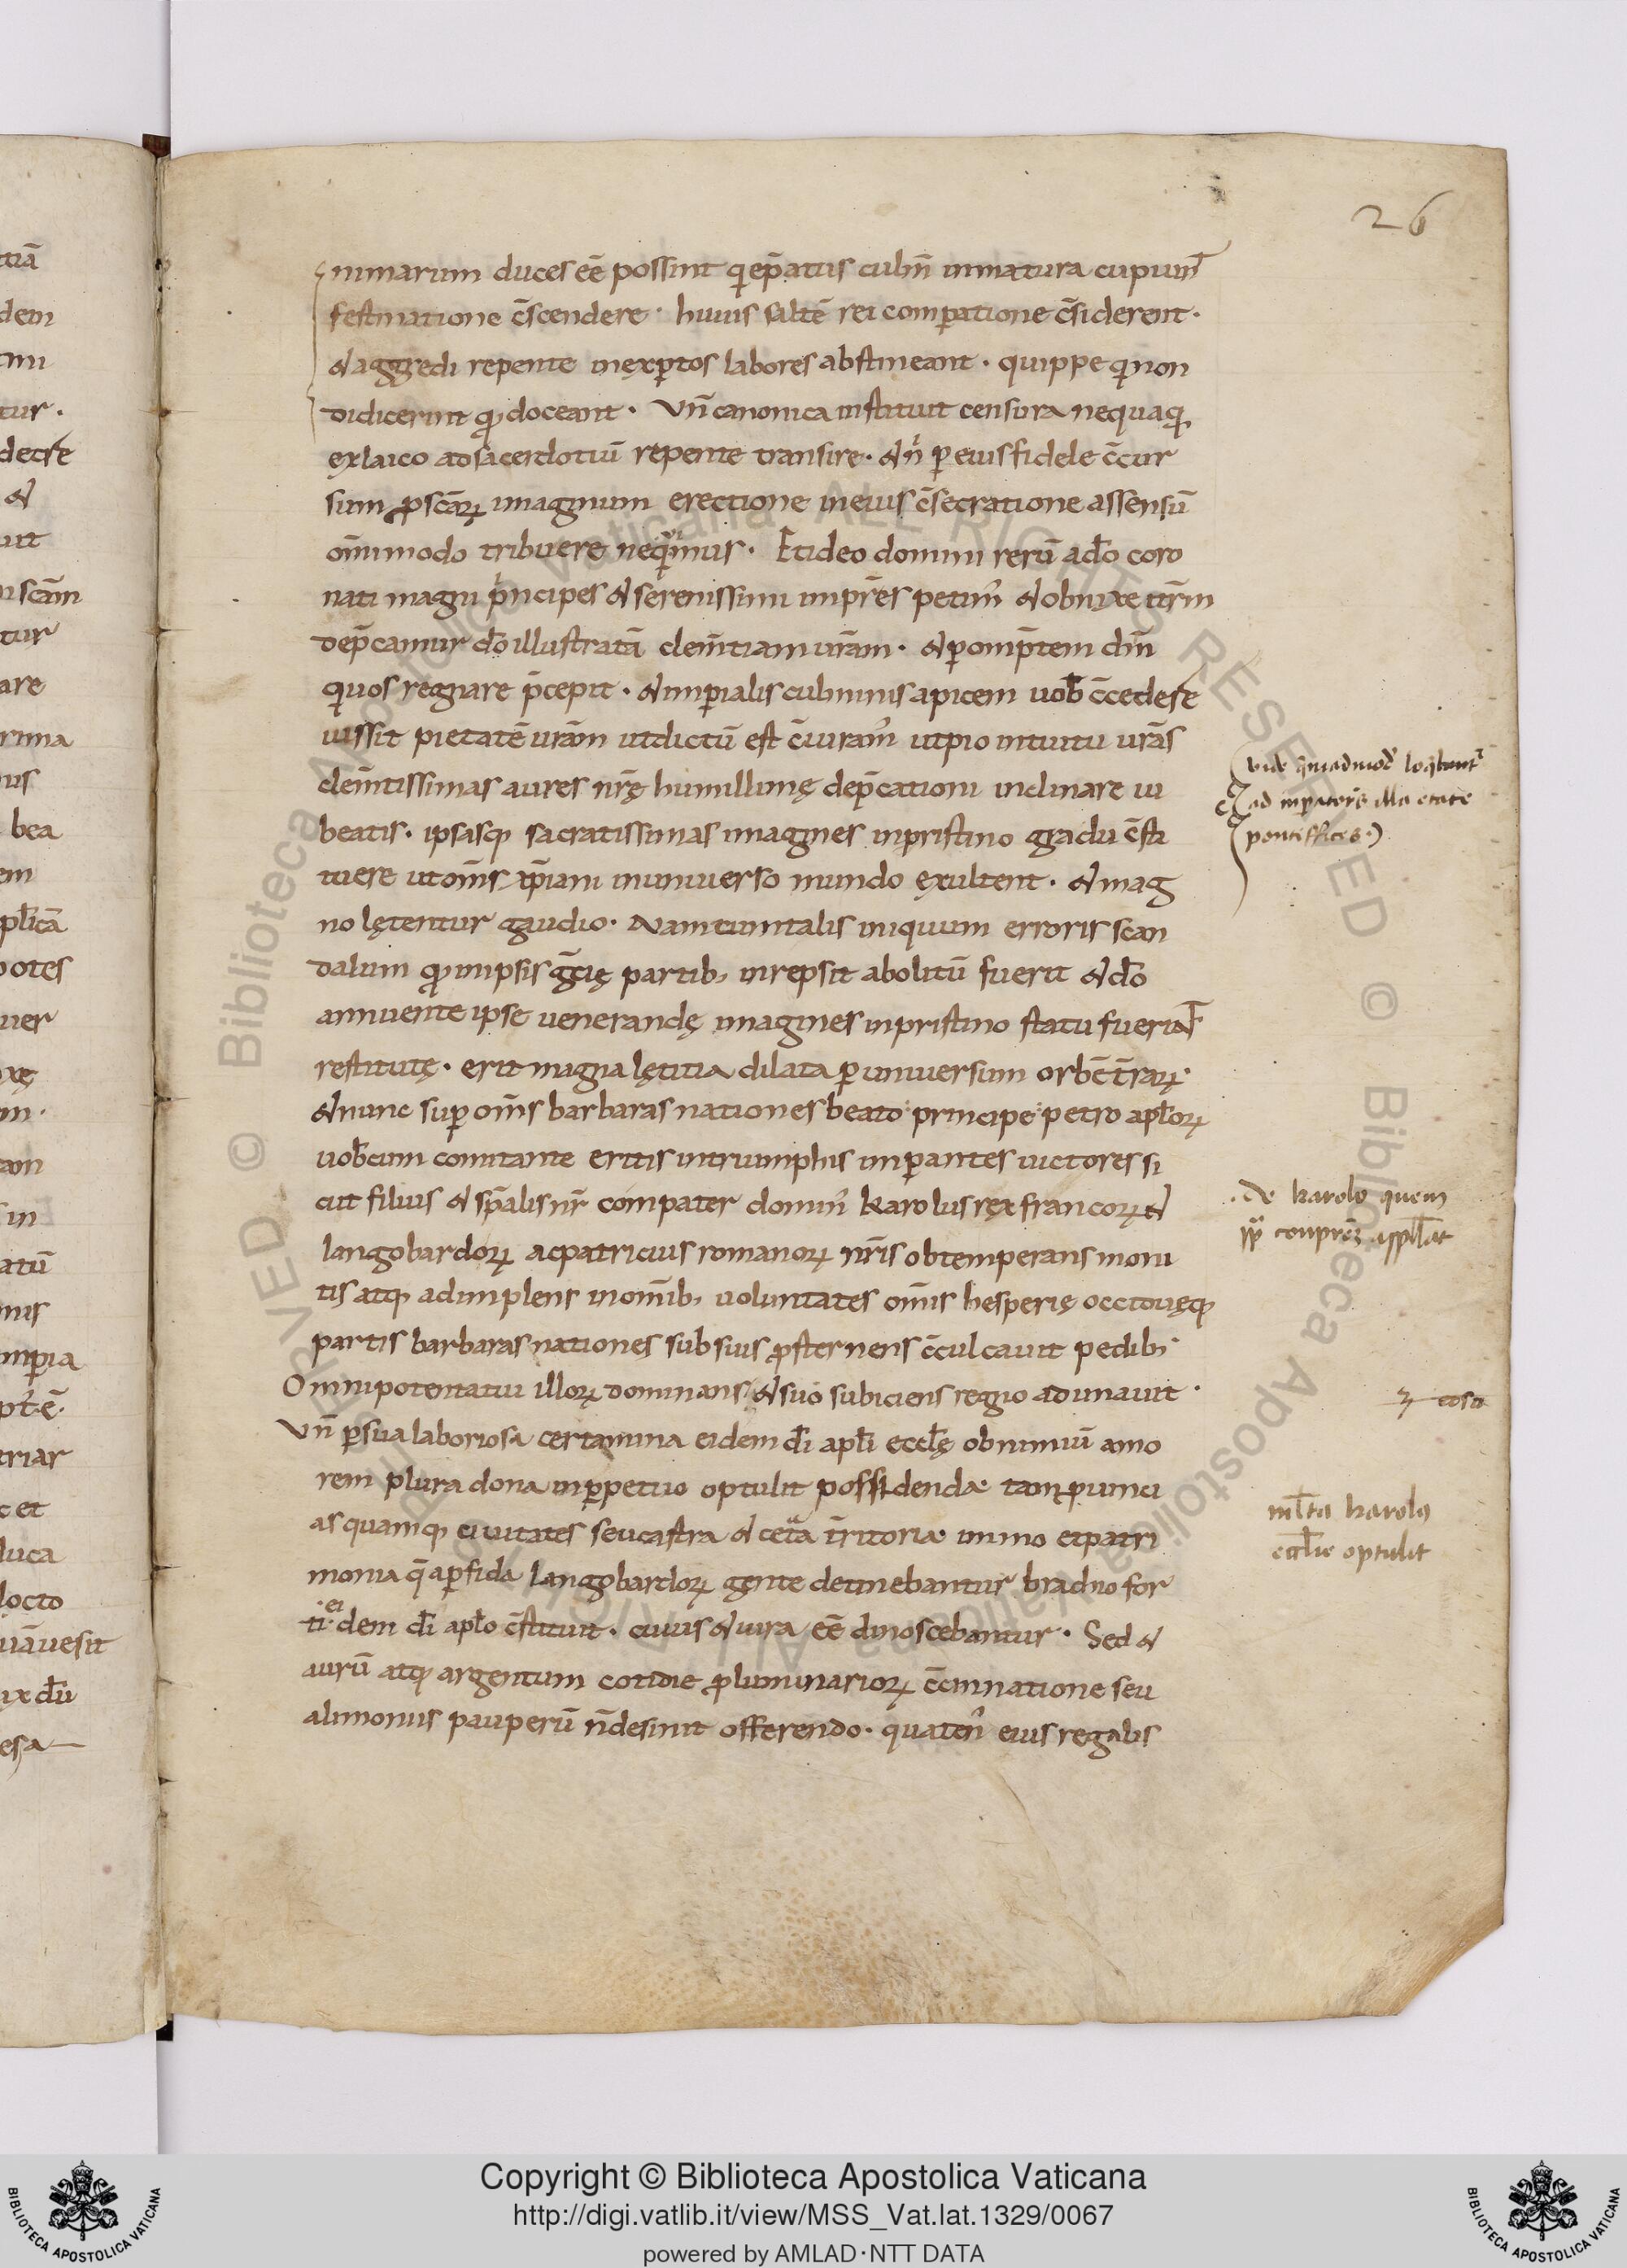 26
nimarum duces eē possint q̨ ep̄atus culm̄ inmatura cupiunt̄
festinatione c̄scendere · huius saltē rei comparatione c̄siderent ·
& aggredi repente inexptos labores abstineant · quippe q̨ non
didicerint qđ doceant · Vn̄ canonica instituit censura nequaq̨
ex laico ad sacerdotiū repente transire · & n̄ p eius fidele c̄cur
sum p scār imaginum erectione in eius c̄secratione assensū
om̄imodo tribuere neq̨imus · Et ideo domini rerū a dō coro
nati magni pincipes & serenissimi impr̄es petim᾿ & obnixe
dep̄camur dō illustratā clem̄tiam urām · & p omp̄tem dm̄
quos regnare p̄cepit · & imperialis culminis apicem uob̄ c̄cedere
iussit pietatē urām ut dictū est c̄iuram᾿ ut pio intuitu urās
clem̄tissimas aures nr̄ę humillimę dep̄cationi inclinare iu
beatis · ipsasq; sacratissimas imagines in pristino gradu c̄sti
tuere ut om̄s xp̄iani in uniuerso mundo exultent · & mag
no lętentur gaudio · Nam cum talis iniquum erroris scan
dalum qđ in ipsis gc̄ię partib; inrepsit abolitū fuerit & dō
annuente ipse uenerandę imagines in pristino statu fuerint
restitutę · erit magna lętitia dilata p uniuersum orbē t̄rar
& nunc sup om̄s barbaras nationes beato principe petro apl̄or
uob̄cum comitante eritis in triumphis imperantes uictores si
cut filius & sp̄alis nr̄ compater domin᾿ Karolus rex francor &
langobardor ac patricius romanor nr̄is obtemperans moni
tis atq; adimplens in om̄ib; uoluntates om̄is hesperię occiduęq;
partis barbaras nationes sub suis p̄sternens c̄culcauit pedib;
Omnipotentatui illor dominans & suo subiciens regno adunauit ·
Vn̄ p sua laboriosa certamina eidem dī apl̄i eccl̄ę ob nimiū amo
rem plura dona in ppetuo optulit possidenda tam puinci
as quamq; ciuitates seu castra & cet̄a t̄ritoria immo et patri
monia q̄ a pfida langobardor gente detinebantur bradiio for
ti · ei dem dī apl̄o c̄stituit · cuius & iura eē dinoscebantur · Sed &
aurū atq; argentum cotidie p luminarior c̄cinnatione seu
alimoniis pauperū n̄ desinit offerendo · quaten᾿ eius regalis
vide quēadmod᾿ loqbant᾿
ad inpatorē illa etate
pontiffices ·)
· de karolo quem
appl̄lat
ml̄ta karolo
eccl̄ie optulit
tiā
dem
tur ·
decre
&
uit
scām
tur
are
bea
em
pl̄icā
potes
uer
xę
am
in
atū
mis
mpia
triar
c et
luca
locto
uāuesit
ix dū
esa
Copyright © Biblioteca Apostolica Vaticana
http://digi.vatlib.it/view/MSS_Vat.lat.1329/0067
powered by AMLAD·NTT DATA
BIBLIOTECA APOSTOLICA VATICANA
BIBLIOTECA APOSTOLICA VATICANA